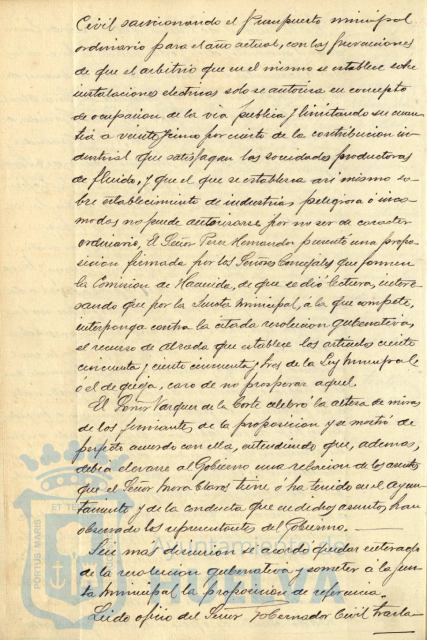 Civil sancionando el presupuesto municipal
ordinario para el año actual, con las prevenciones
de que el arbitrio que en el mismo se establece sobre
instalaciones electricas solo se autoriza en concepto
de ocupacion de la via publica y limitando su cuan-
tia a veinticinco por ciento de la contribucion in-
dustrial que satisfagan las sociedades productoras
de fluido, y que el que se establecia asi mismo so-
bre establecimiento de industrias peligrosas ó inco-
modas no puede autorizarse por no ser de caracter
ordinario, El Señor Perez Hernandez presentó una propo-
sicion firmada por los Señores Concejales que forman
la Comision de Hacienda, de que se dió lectura, intere-
sando que por la Junta Municipal, á la que compete,
interponga contra la citada resolucion gubernativa,
el recurso de alzada que establece los articulos ciento
cincuenta y ciento cincuenta y tres de la Ley Municipal
ó el de queja, caso de no prosperar aquel.
El Señor Vazquez de la Corte celebró la alteza de miras
de los firmantes de la proposicion y se mostró de
perfecto acuerdo con ella, entendiendo que, ademas,
debia elevarse al Gobierno una relacion de los asuntos
que el Señor Mora Claros tiene ó ha tenido en el ayun-
tamiento y de la conducta que en dichos asuntos, han
observado los representantes del Gobierno.
Sin mas discusion se acordó quedar enterado
de la resolucion gubernativa y someter á la Jun-
ta Municipal la proposicion de referencia.
Leido oficio del Señor Gobernador Civil trasla-
PORTUS MARIS
ET TE
Ayuntamiento de
HUELVA